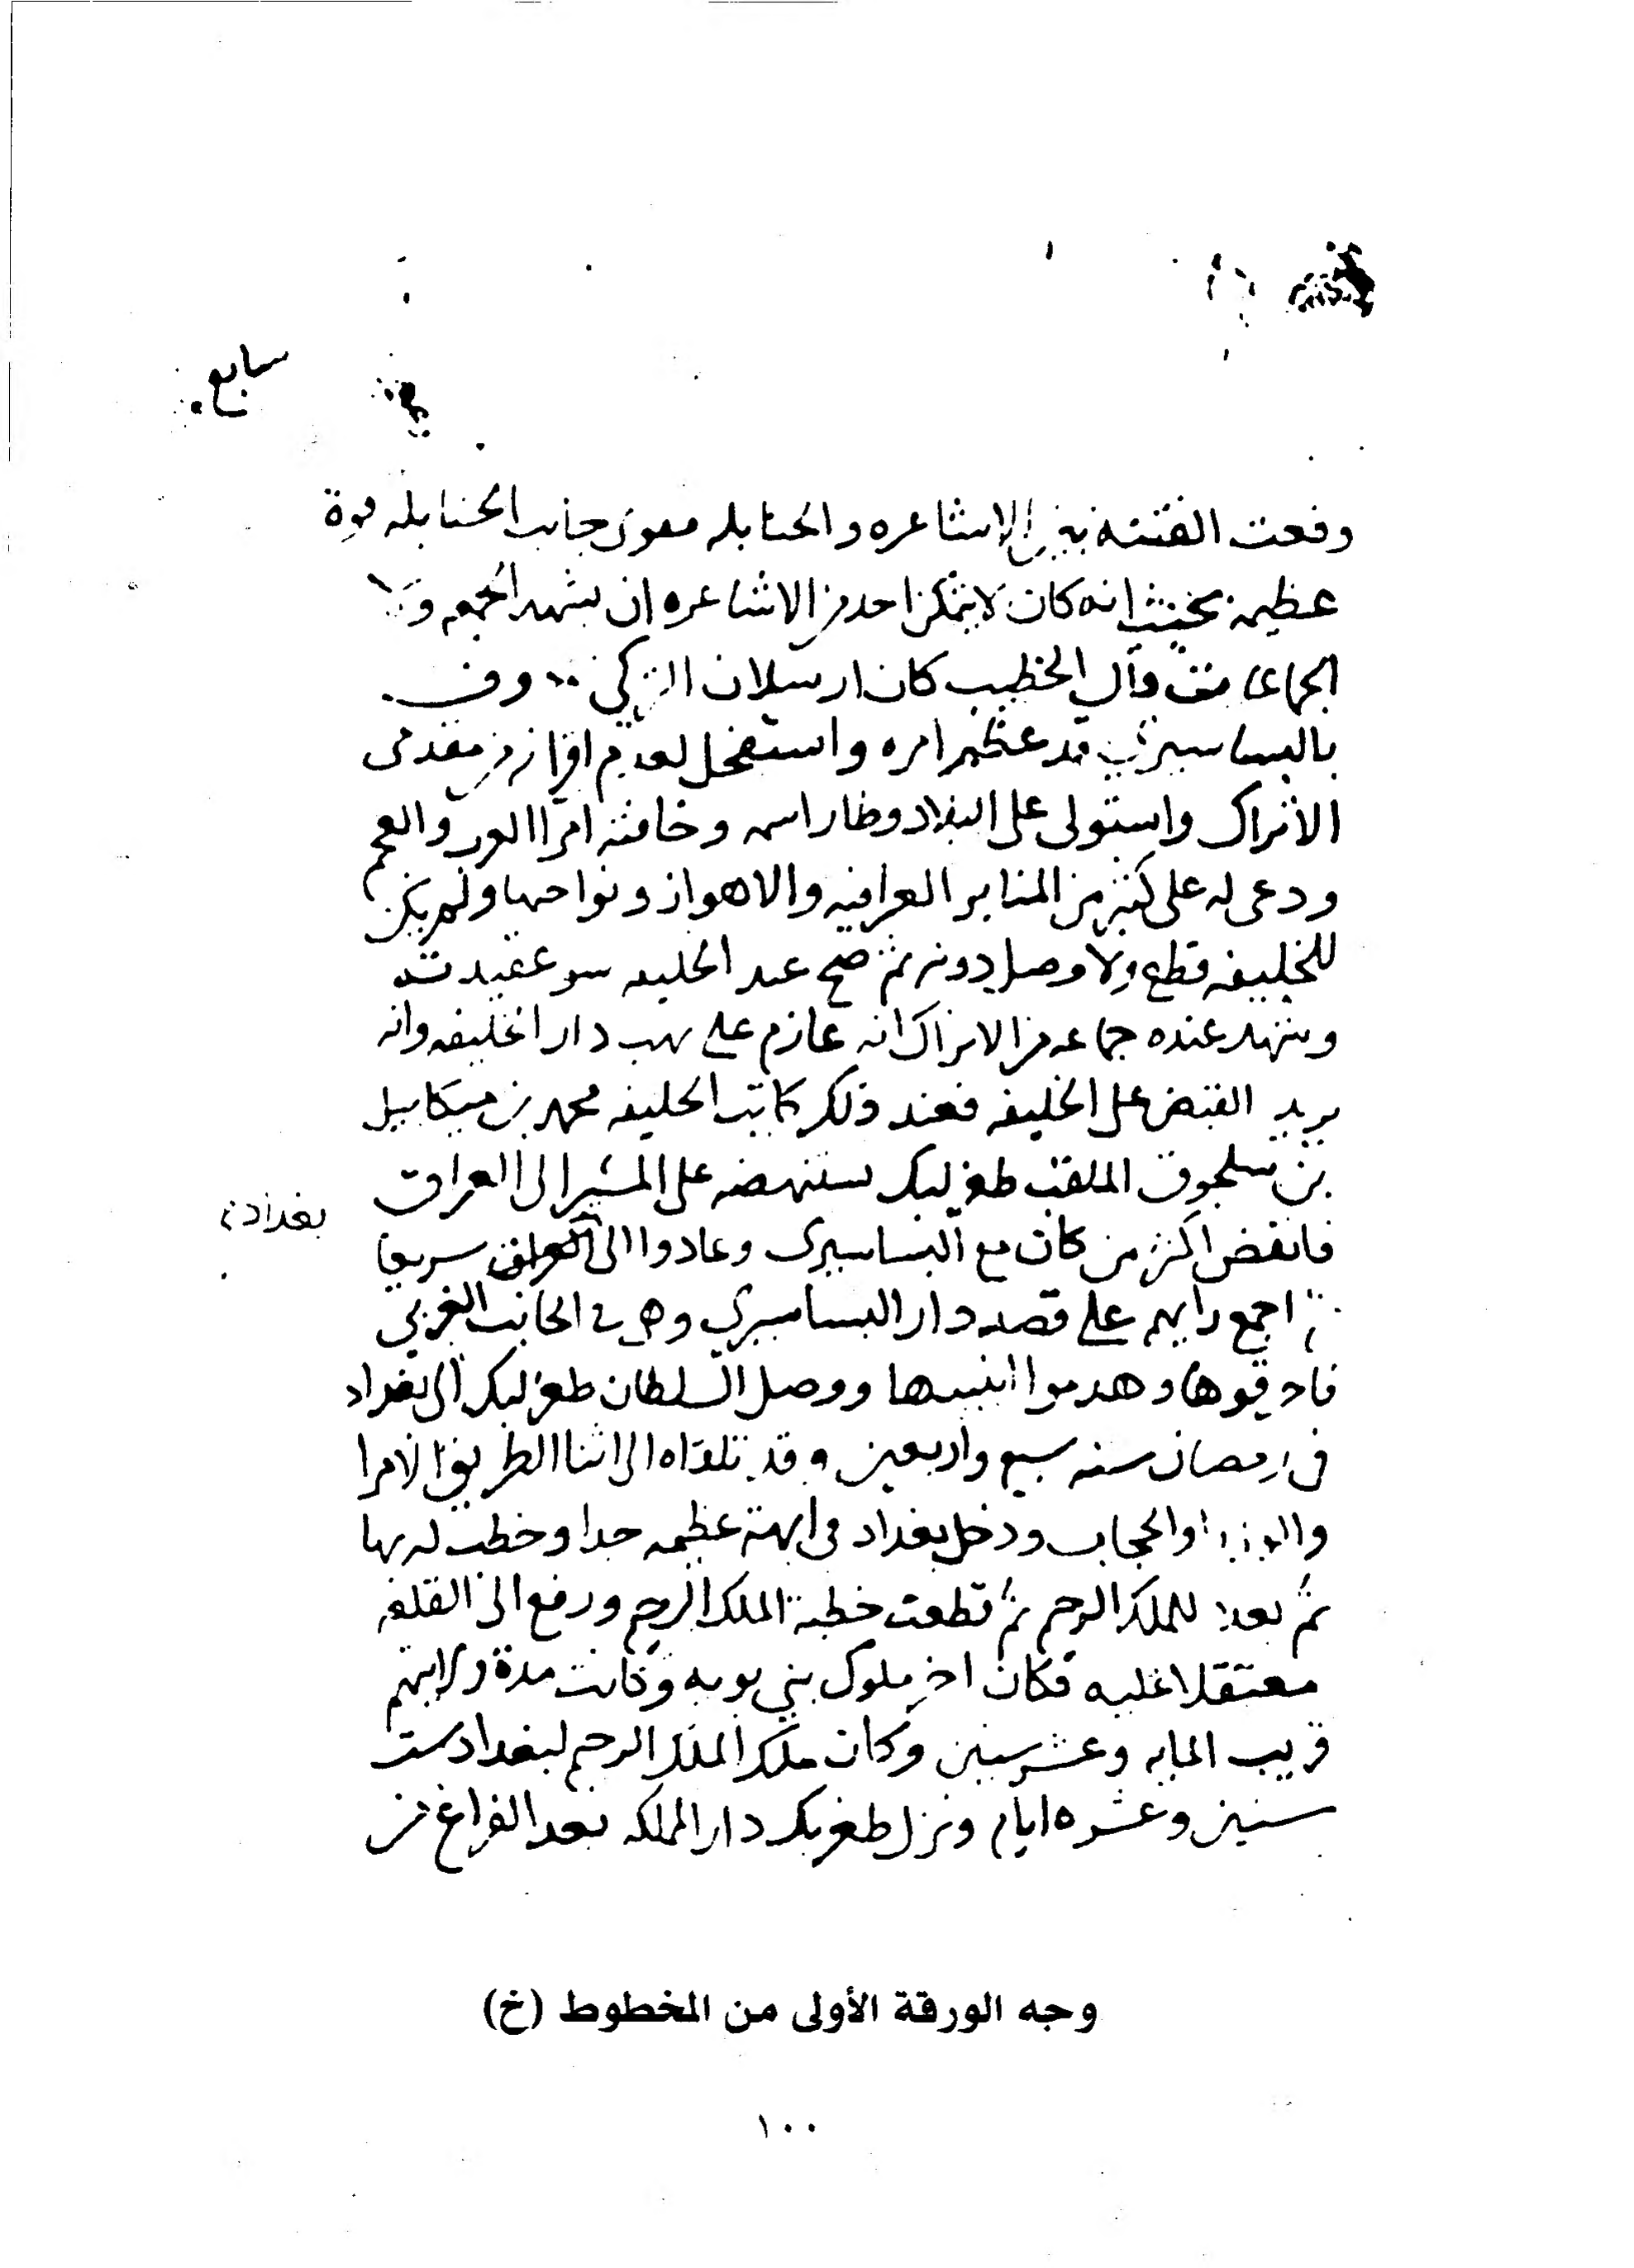 سابع
وقعت الفتنة بين الاشاعره والحنابله فقوى جانب الحنابله قوة
عظيمة بحيث انه كان لا يتمكن احد من الاشاعره ان يشهد الجمعه ولا
الجماعات قال الخطيب كان ارسلان التركي
بالبساسيري قد عظم امره واستفحل لعدم اقرانه من مقدمى
الاتراك واستولى على البلاد وطار اسمه وخافته امرا العرب والعجم
ودعى له على كثير من المنابر العراقيه والاهواز ونواحيها ولم يكن
للخليفه قطع ولا وصل دونه ثم صح عند الخليفه سو عقيدته
وشهد عنده جماعه من الاتراك انه عازم على نهب دار الخليفه وانه
يريد القبض على الخليفه فعند ذلك كاتب الخليفه محمد بن ميكاييل
بن سلجوق الملقب طغرلبك يستنهضه على المسير الى العراق
فانفض اكثر من كان مع البساسيري وعادوا الى العراق سريعا
بغداد
ثم اجمع رايهم على قصد دار البساسيري وهى فى الجانب الغربي
فاحرقوها وهدموا ابنيتها ووصل السلطان طغرلبك الى بغداد
فى رمضان سنه سبع واربعين وقد تلقاه الى اثنا الطريق الامرا
والوزرا والحجاب ودخل بغداد فى ابهة عظيمه جدا وخطب له بها
ثم بعده للملك الرحيم ثم قطعت خطبة الملك الرحيم ورفع الى القلعه
معتقلا عليه فكان اخر ملوك بني بويه وكانت مدة ولايتهم
قريب المايه وعشر سنين وكان ملك الملك الرحيم لبغداد ست
سنين وعشره ايام ونزل طغرلبك دار المملكه بعد الفراغ من
وجه الورقة الأولى من المخطوط (خ)
١٠٠